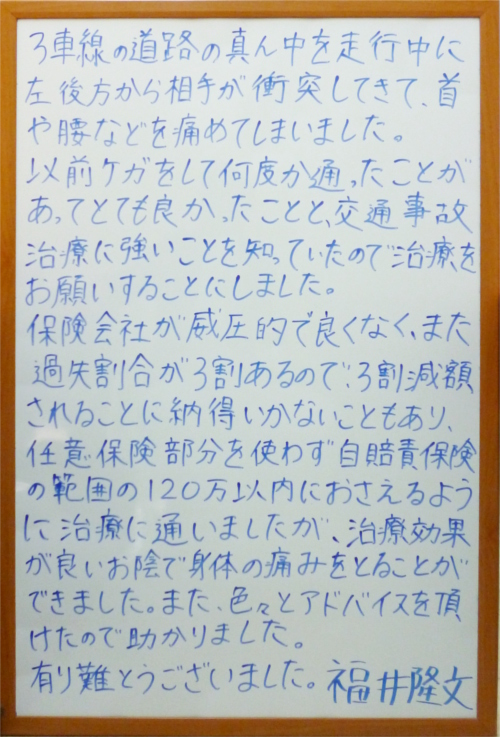 3車線の道路の真ん中を走行中に
左後方から相手が衝突してきて、首
や腰などを痛めてしまいました。
以前ケガをして何度か通ったことが
あってとても良かったことと、交通事故
治療に強いことを知っていたので治療を
お願いすることにしました。
保険会社が威圧的で良くなく、また
過失割合が3割あるので、3割減額
されることに納得いかないこともあり、
任意保険部分を使わず自賠責保険
の範囲の120万以内におさえるよう
に治療に通いましたが、治療効果
が良いお陰で身体の痛みをとることが
できました。また、色々とアドバイスを頂
けたので助かりました。
有り難とうございました。福井隆文